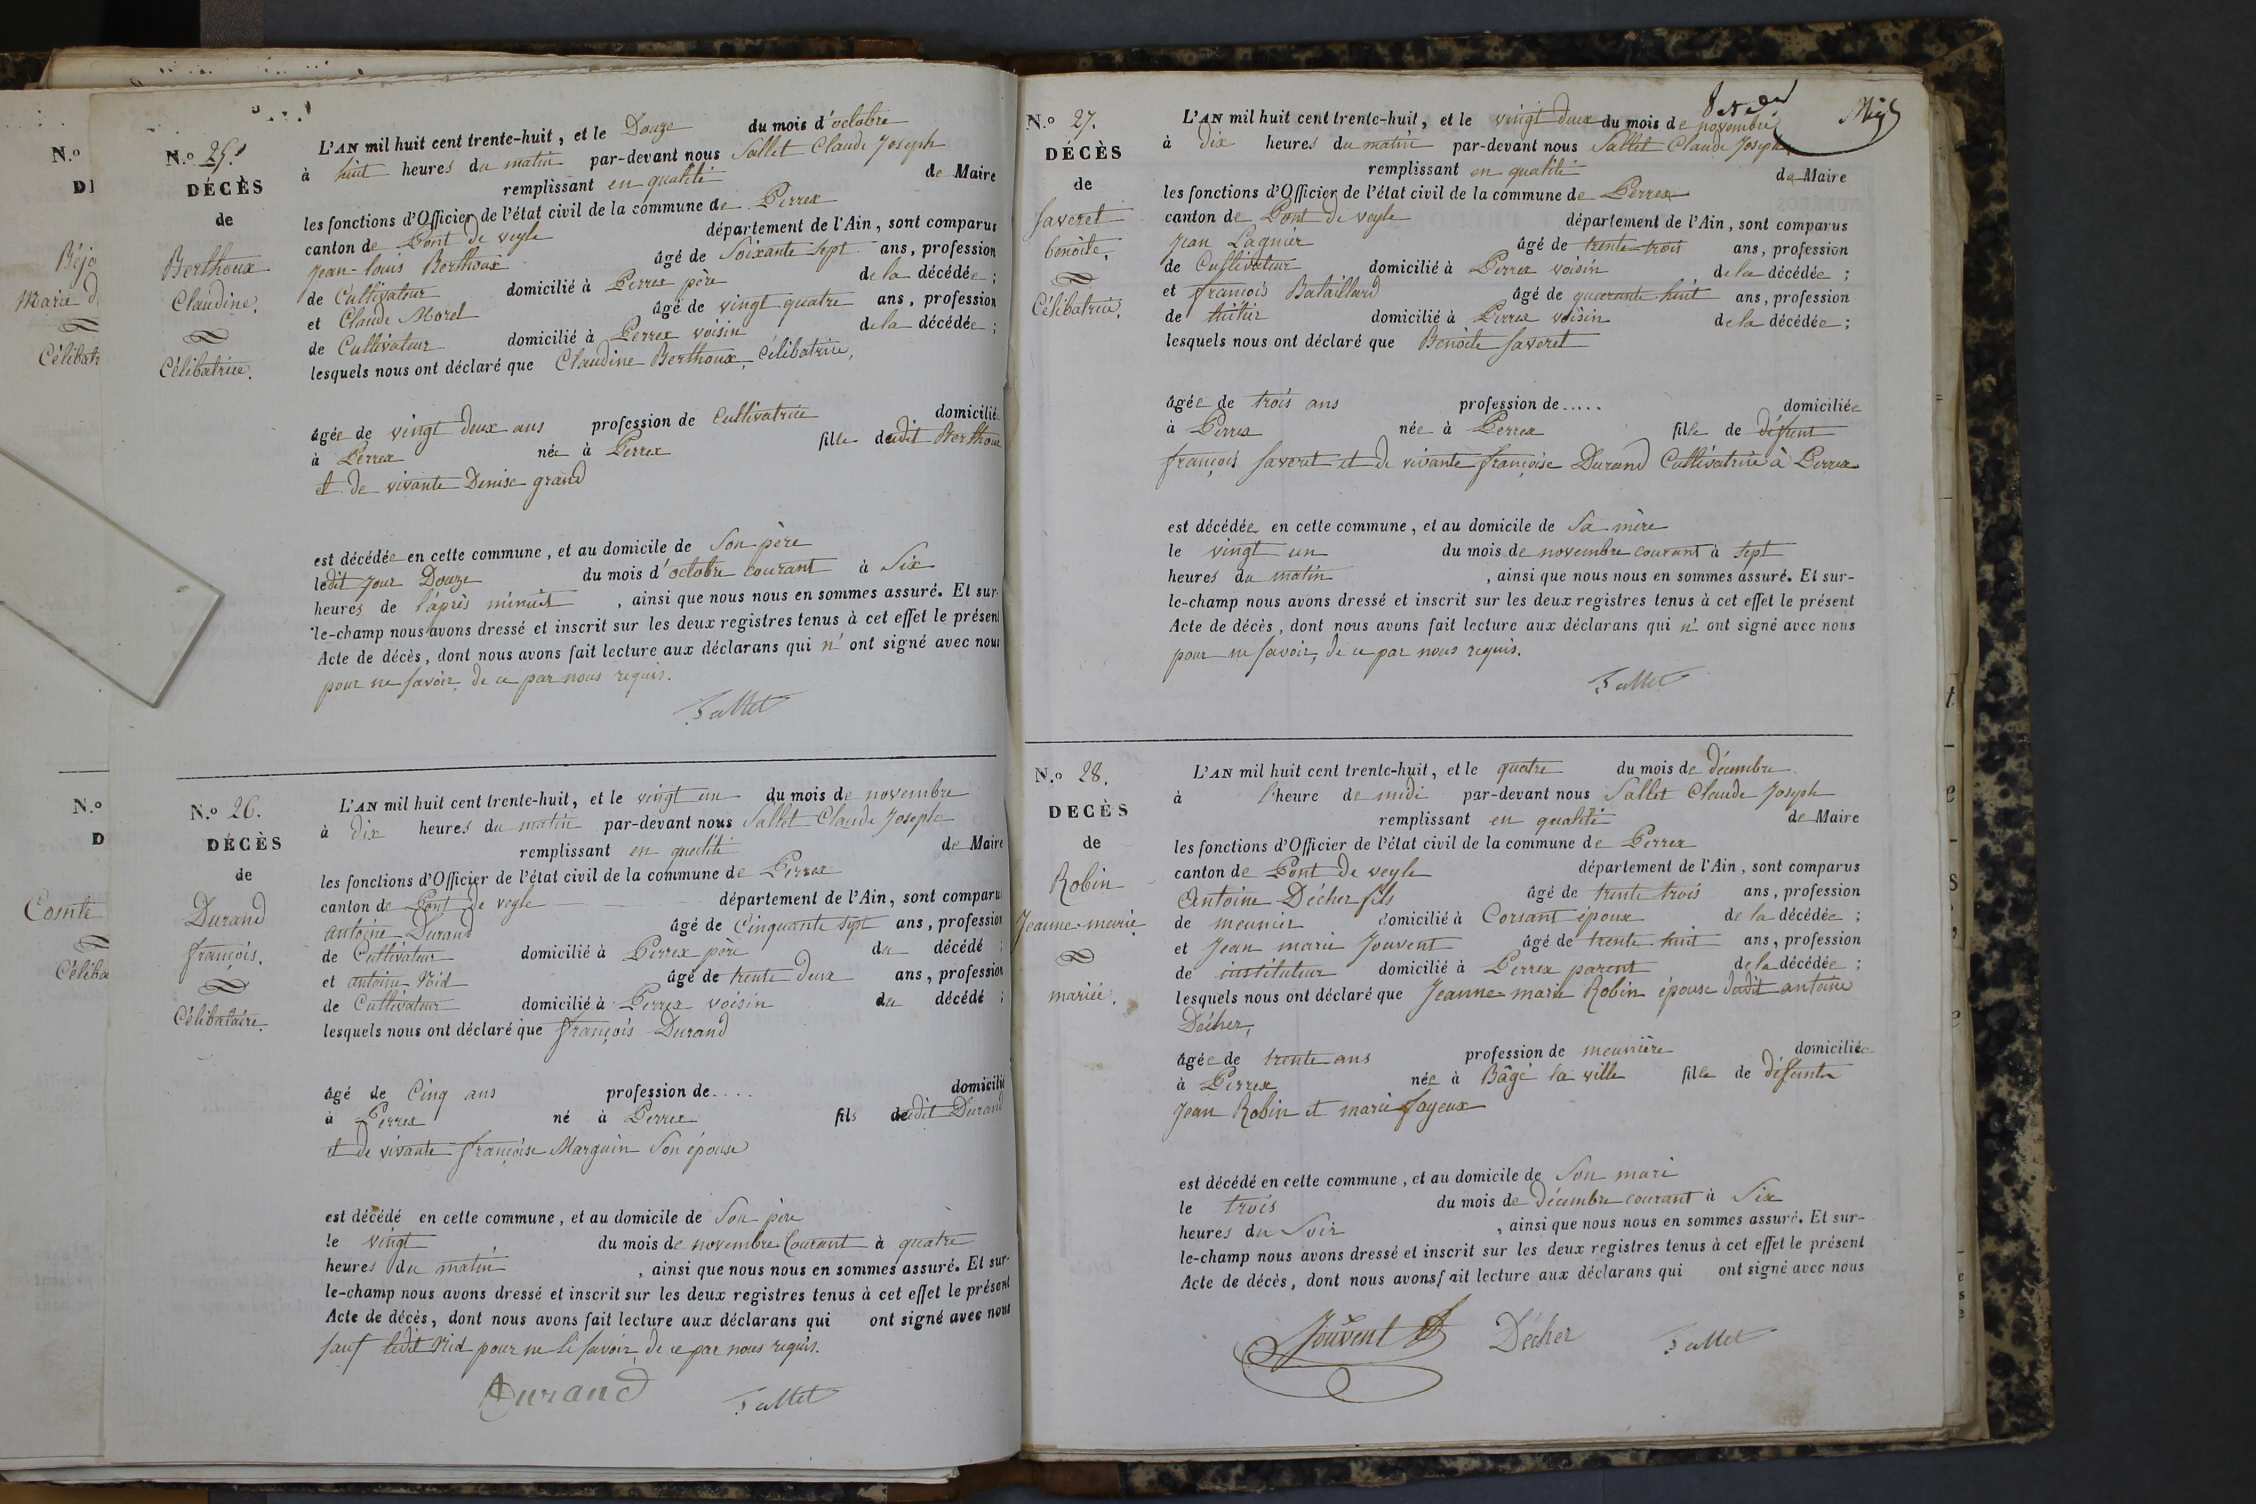 N.o
DÉ
Béjo
Marie d
Célibatr
N.o
D
Comte
Céliba
N.o 25.
DÉCÈS
de
Berthoux
Claudine.
Célibatrice.
L'AN mil huit cent trente-huit, et le Douze du mois d'octobre
à huit heures du matin par-devant nous Sallet Claude Joseph
remplissant en qualité de Maire
les fonctions d'Officier de l'état civil de la commune de Perrex
canton de Pont de veyle département de l'Ain, sont comparus
Jean-louis Berthoux âgé de Soixante Sept ans, profession
de Cultivateur domicilié à Perrex père de la décédée;
et Claude Morel âgé de vingt quatre ans, profession
de Cultivateur domicilié à Perrex voisin de la décédée;
lesquels nous ont déclaré que Claudine Berthoux, Célibatrice,
âgée de vingt deux ans profession de Cultivatrice domiciliée
à Perrex née à Perrex fille dudit Berthoux
et de vivante Denise grand
est décédée en cette commune, et au domicile de Son père
ledit jour Douze du mois d'octobre courant à Six
heures de l'après minuit, ainsi que nous nous en sommes assuré. Et sur-
le-champ nous avons dressé et inscrit sur les deux registres tenus à cet effet le présent
Acte de décès, dont nous avons fait lecture aux déclarans qui n' ont signé avec nous
pour ne savoir, de ce par nous requis.
Sallet
N.o 26.
DÉCÈS
de
Durand
françois.
Célibataire.
L'AN mil huit cent trente-huit, et le vingt un du mois de novembre
à dix heures du matin par-devant nous Sallet Claude Joseph
remplissant en qualité de Maire
les fonctions d'Officier de l'état civil de la commune de Perrex
canton de Pont de veyle département de l'Ain, sont comparus
antoine Durand âgé de Cinquante Sept ans, profession
de Cultivateur domicilié à Perrex père du décédé;
et antoine Nid âgé de trente deux ans, profession
de Cultivateur domicilié à Perrex voisin du décédé;
lesquels nous ont déclaré que françois Durand
âgé de Cinq ans profession de.... domicilié
à Perrex né à Perrex fils dudit Durand
et de vivante françoise Marguin Son épouse
est décédé en cette commune, et au domicile de Son père
le vingt du mois de novembre Courant à quatre
heures du matin, ainsi que nous nous en sommes assuré. Et sur-
le-champ nous avons dressé et inscrit sur les deux registres tenus à cet effet le présent
Acte de décès, dont nous avons fait lecture aux déclarans qui ont signé avec nous
sauf ledit Nid pour ne le savoir, de ce par nous requis.
Durand Sallet
N.o 27.
DÉCÈS
de
Saveret
benoite.
Célibatrice.
L'AN mil huit cent trente-huit, et le vingt deux du mois de novembre
à dix heures du matin par-devant nous Sallet Claude Joseph
remplissant en qualité de Maire
les fonctions d'Officier de l'état civil de la commune de Perrex
canton de Pont de veyle département de l'Ain, sont comparus
Jean Lagnier âgé de trente trois ans, profession
de Cultivateur domicilié à Perrex voisin de la décédée;
et françois Bataillard âgé de quarante huit ans, profession
de domicilié à Perrex voisin de la décédée;
lesquels nous ont déclaré que Benoite Saveret
âgée de trois ans profession de..... domiciliée
à Perrex née à Perrex fille de défunt
françois Saveret et de vivante françoise Durand Cultivatrice à Perrex
est décédée en cette commune, et au domicile de Sa mère
le vingt un du mois de novembre courant à sept
heures du matin, ainsi que nous nous en sommes assuré. Et sur-
le-champ nous avons dressé et inscrit sur les deux registres tenus à cet effet le présent
Acte de décès, dont nous avons fait lecture aux déclarans qui n' ont signé avec nous
pour ne savoir, de ce par nous requis.
Sallet
N.o 28.
DECÈS
de
Robin
Jeanne-marie
mariée.
L'AN mil huit cent trente-huit, et le quatre du mois de décembre
à l'heure de midi par-devant nous Sallet Claude Joseph
remplissant en qualité de Maire
les fonctions d'Officier de l'état civil de la commune de Perrex
canton de Pont de veyle département de l'Ain, sont comparus
Antoine Décher fils âgé de trente trois ans, profession
de meunier domicilié à Corsant époux de la décédée;
et Jean marie Jouvent âgé de trente huit ans, profession
de instituteur domicilié à Perrex parent de la décédée;
lesquels nous ont déclaré que Jeanne-marie Robin épouse dudit antoine
Décher,
âgée de trente ans profession de meunière domiciliée
à Perrex née à Bâgé la ville fille de défunts
Jean Robin et marie fayeux
est décédé en cette commune, et au domicile de Son mari
le trois du mois de décembre courant à Six
heures du Soir, ainsi que nous nous en sommes assuré. Et sur-
le-champ nous avons dressé et inscrit sur les deux registres tenus à cet effet le présent
Acte de décès, dont nous avons fait lecture aux déclarans qui ont signé avec nous
Jouvent Décher Sallet